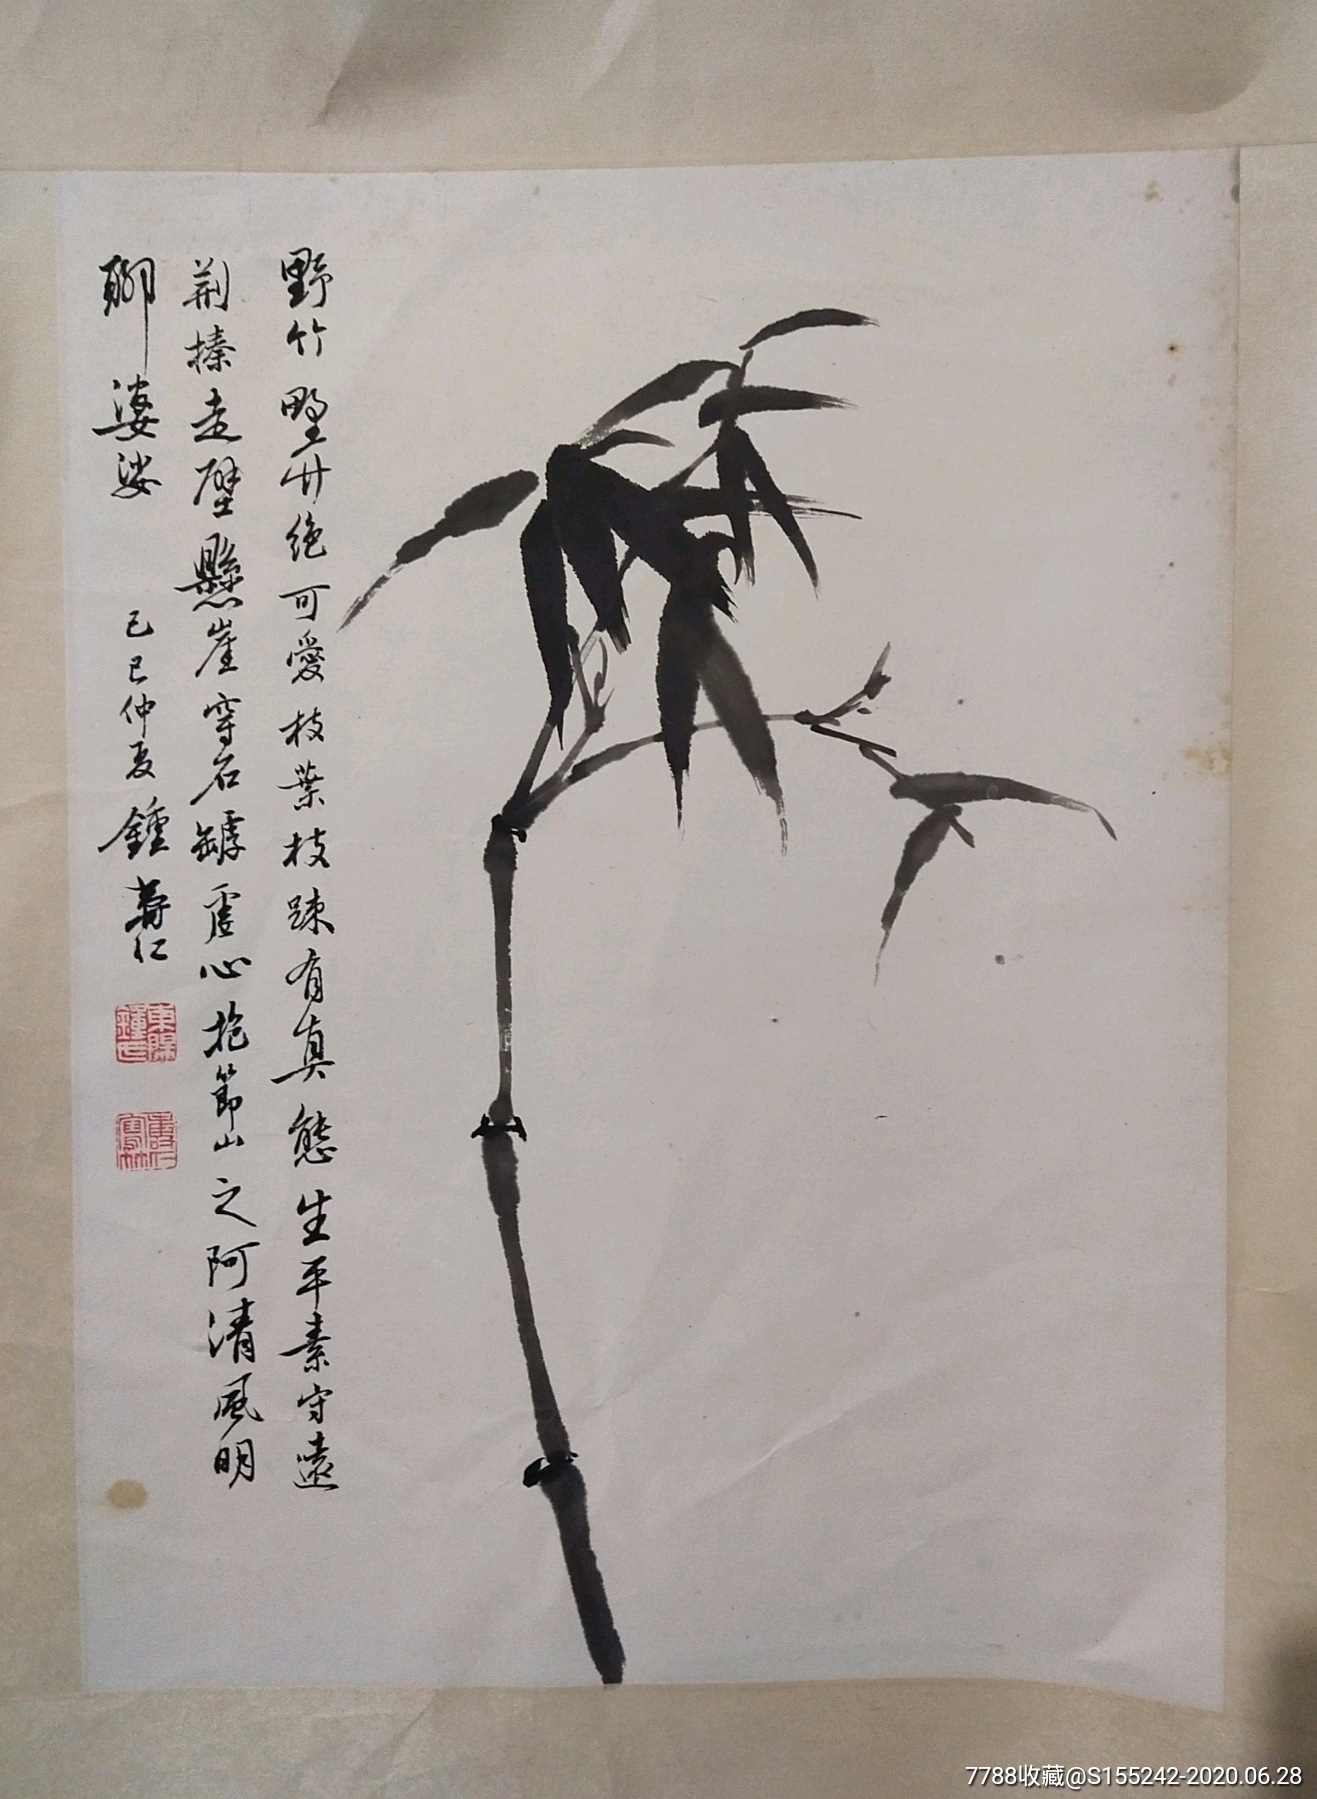 野竹野竹絶可愛枝葉枝踈有真態生平素守遠
荆榛走壁懸崖穿石罅虛心抱節山之阿清風明
聊婆娑
己巳仲夏鍾壽仁
7788收藏@S155242-2020.06.28